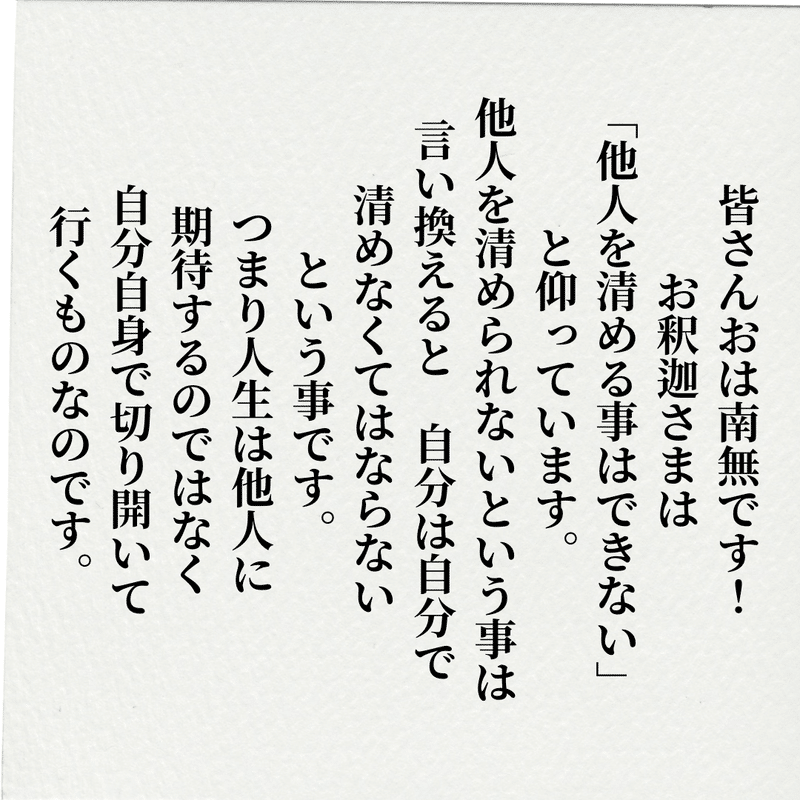 皆さんおは南無です！
お釈迦さまは
「他人を清める事はできない」
と仰っています。
他人を清められないという事は
言い換えると　自分は自分で
清めなくてはならない
という事です。
つまり人生は他人に
期待するのではなく
自分自身で切り開いて
行くものなのです。